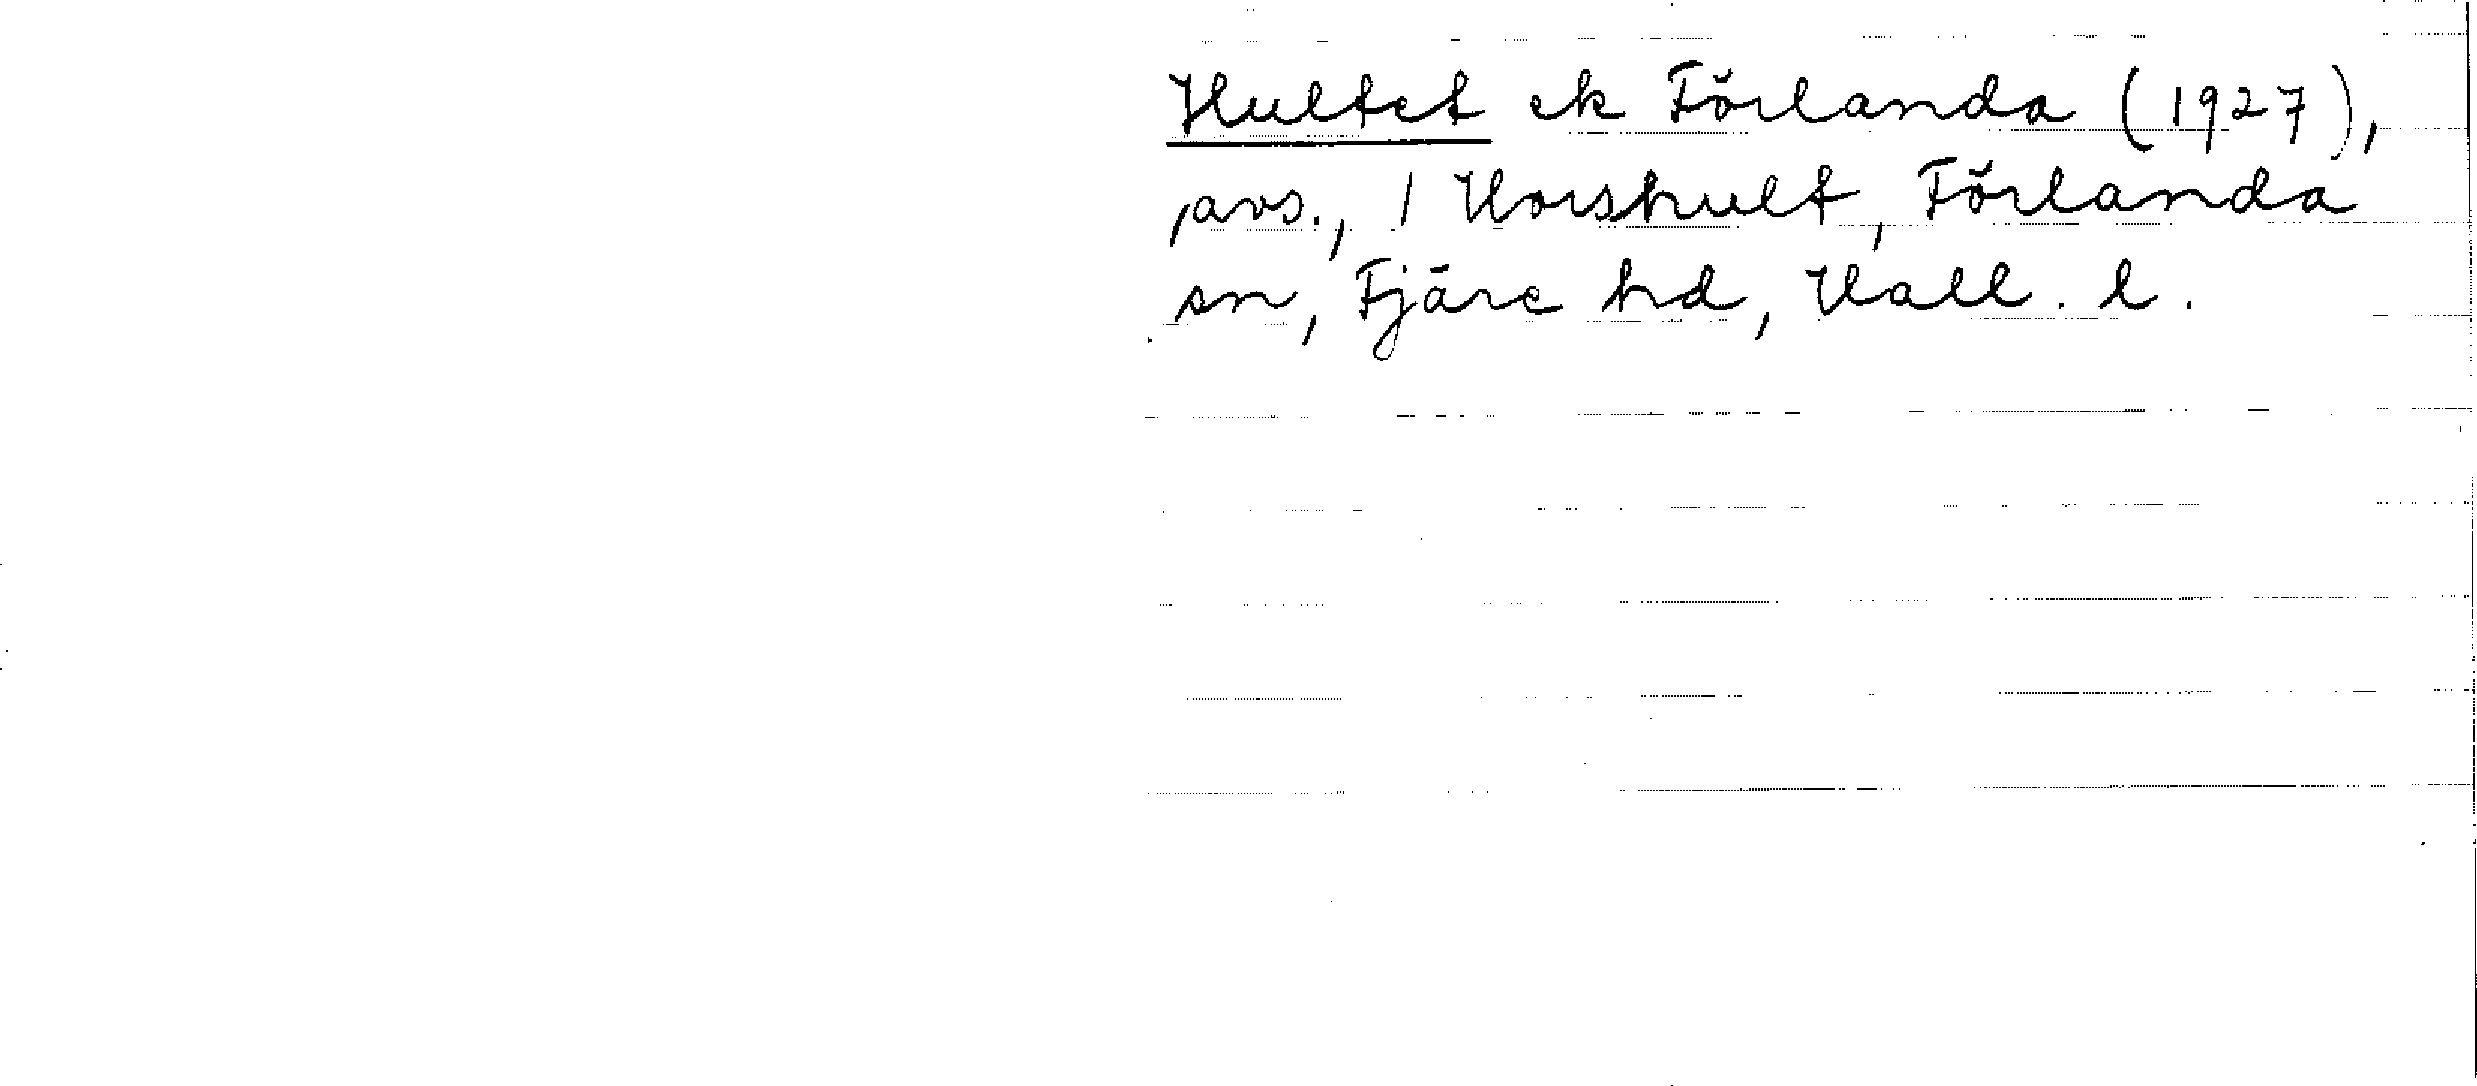 Hultet ek Förlanda (1927),
avs., 1 Horshult, Förlanda
sn, Fjäre hd, Hall. l.